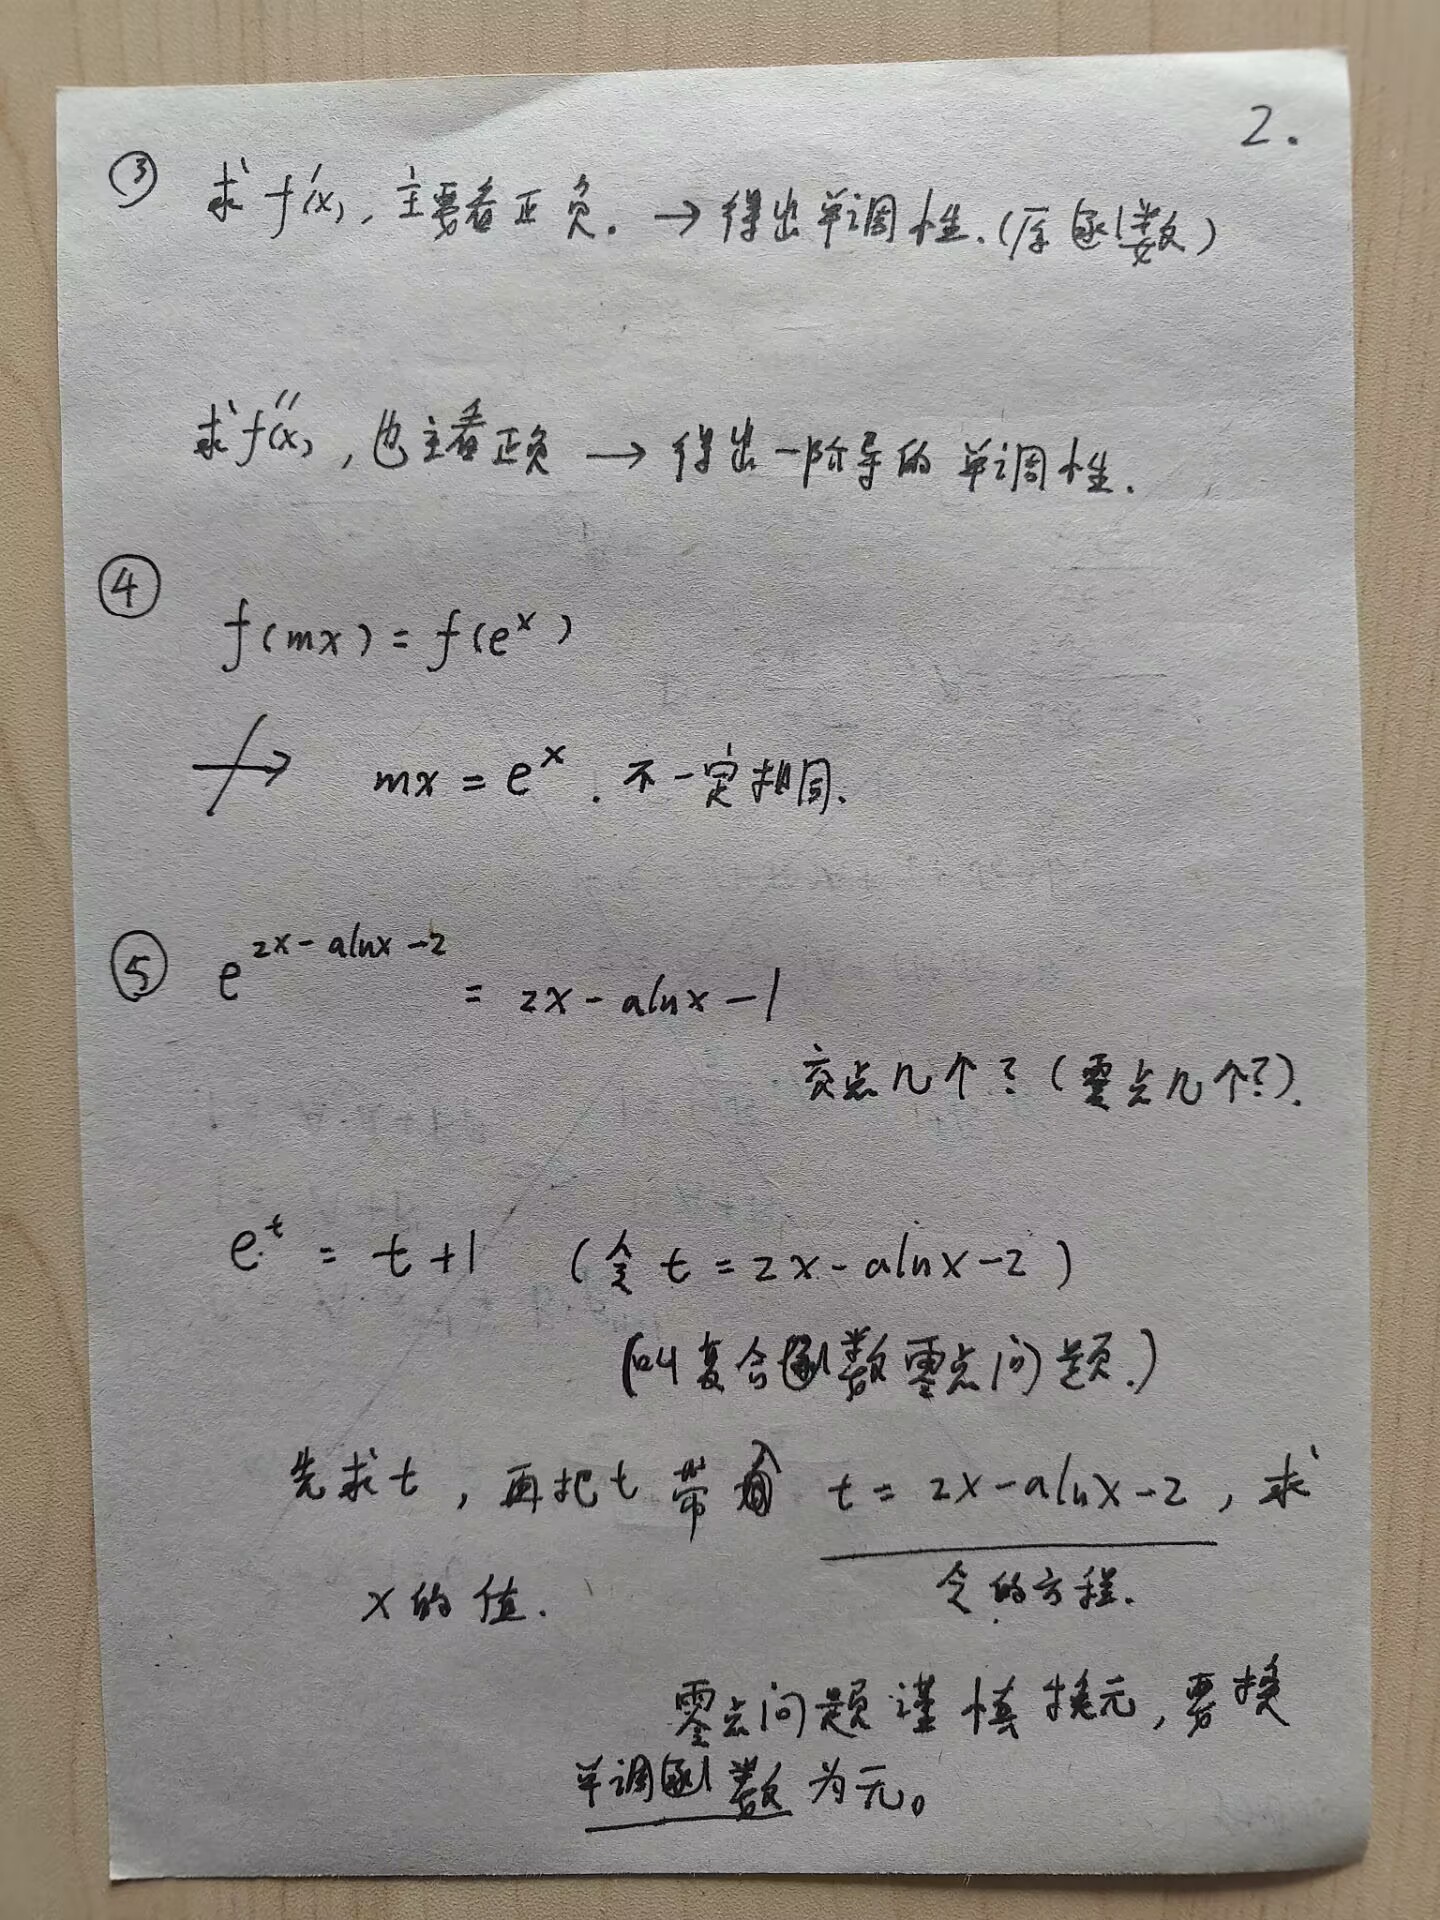 2.
③ 求f'(x),主要看正负.→得出单调性.(原函数)
求f''(x),也主看正负→得出一阶导的单调性.
④
f(mx)=f(e^x)
↛ mx=e^x.不一定相同.
⑤ e^{2x-alnx-2} = 2x-alnx-1
交点几个?(零点几个?).
e^t = t+1 (令t=2x-alnx-2)
(叫复合函数零点问题.)
先求t,再把t带入 t=2x-alnx-2,求
x的值. 令的方程.
零点问题谨慎换元,要换
单调函数为元。